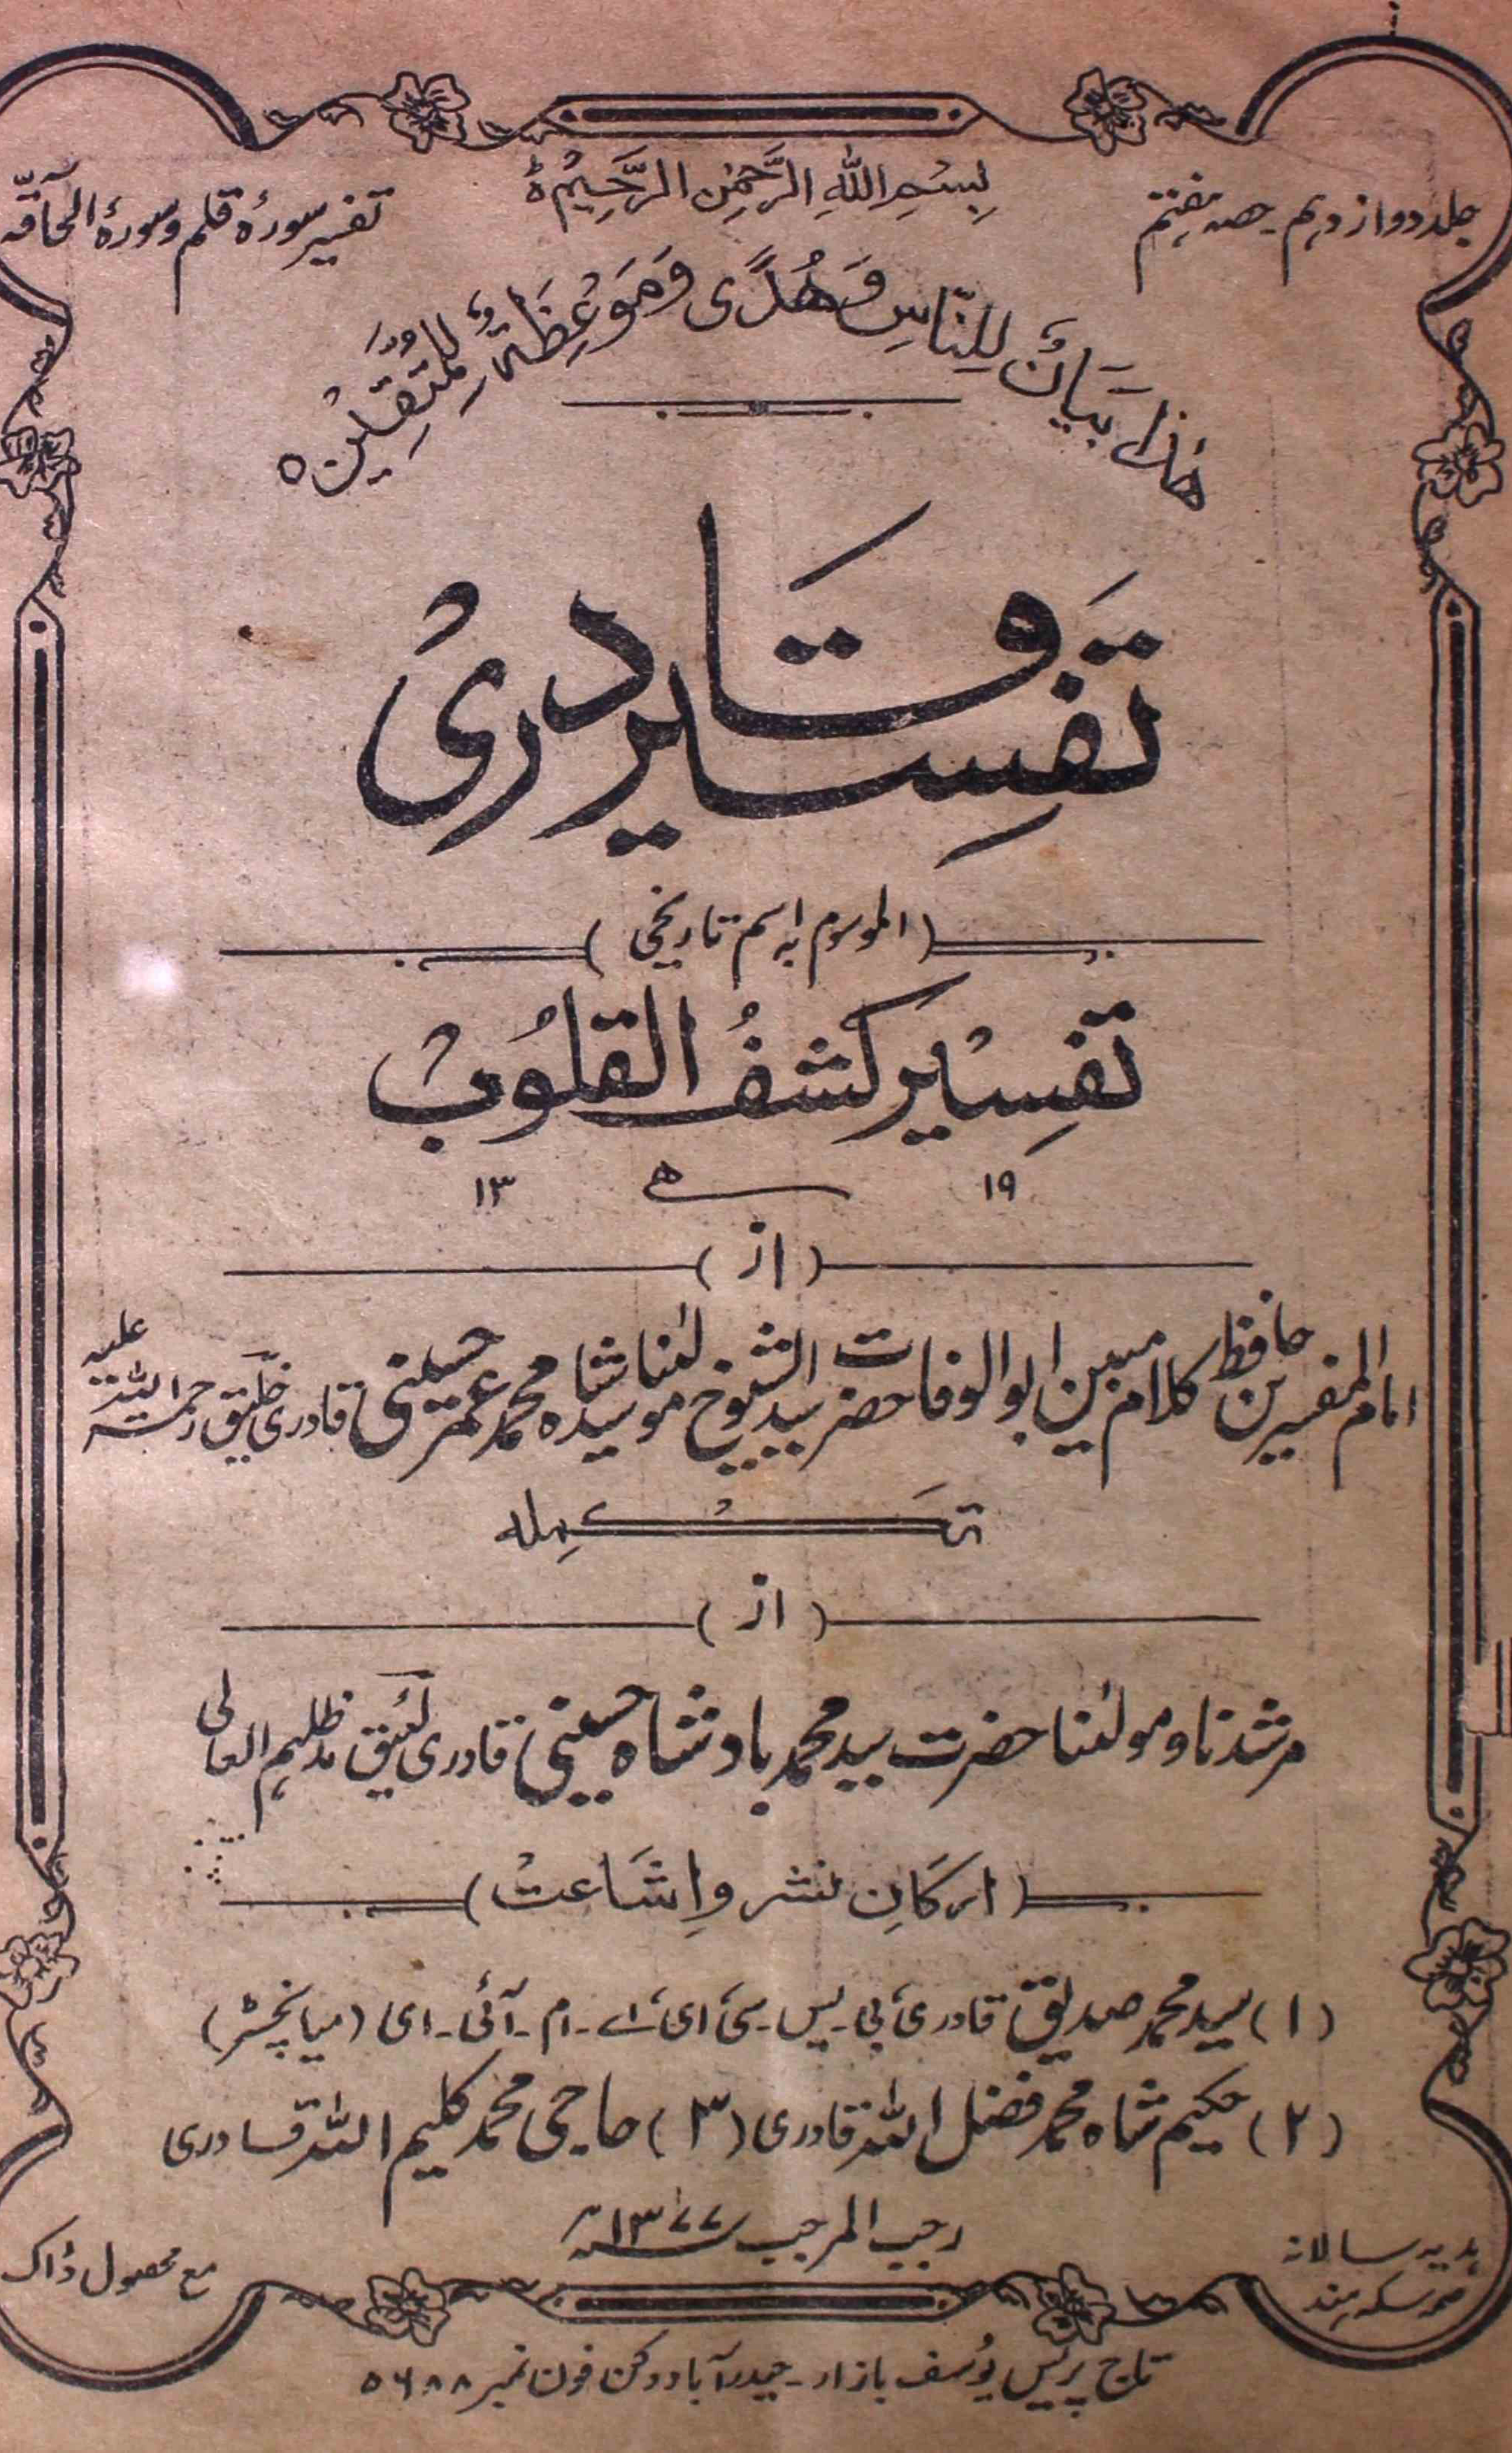 بِسْمِ اللّٰهِ الرَّحْمٰنِ الرَّحِيْمِ ۵
جلد دوازدہم ۔ حصہ ہفتم
تفسیر سورۂ قلم و سورۂ الحآقّہ
هٰذَا بَيَانٌ لِّلنَّاسِ وَهُدًى وَّمَوْعِظَةٌ لِّلْمُتَّقِيْنَ ۵
تفسیر قادری
(الموسوم بہ اسم تاریخی)
تفسیر کشف القلوب
۱۹ ھ ۱۳
(از)
امام المفسرین حافظ کلام مبین ابو الوفا حضرت سید الشیوخ مولٰنا سید شاہ محمد عمر حسینی قادری خلیق رحمۃ اللہ علیہ
تکملہ
(از)
مرشدنا و مولٰنا حضرت سید محمد بادشاہ حسینی قادری لئیق مدظلہم العالی
(ارکان نشر و اشاعت)
(۱) سید محمد صدیق قادری بی ۔ یس ۔ سی ای، اے ۔ ام ۔ آئی ۔ ای (میانچسٹر)
(۲) حکیم شاہ محمد فضل اللہ قادری (۳) حاجی محمد کلیم اللہ قادری
رجب المرجب ۱۳۷۷ھ
ہدیہ سالانہ
سکہ ہند
مع محصول ڈاک
تاج پریس یوسف بازار ۔ حیدرآباد دکن فون نمبر ۵۶۸۸